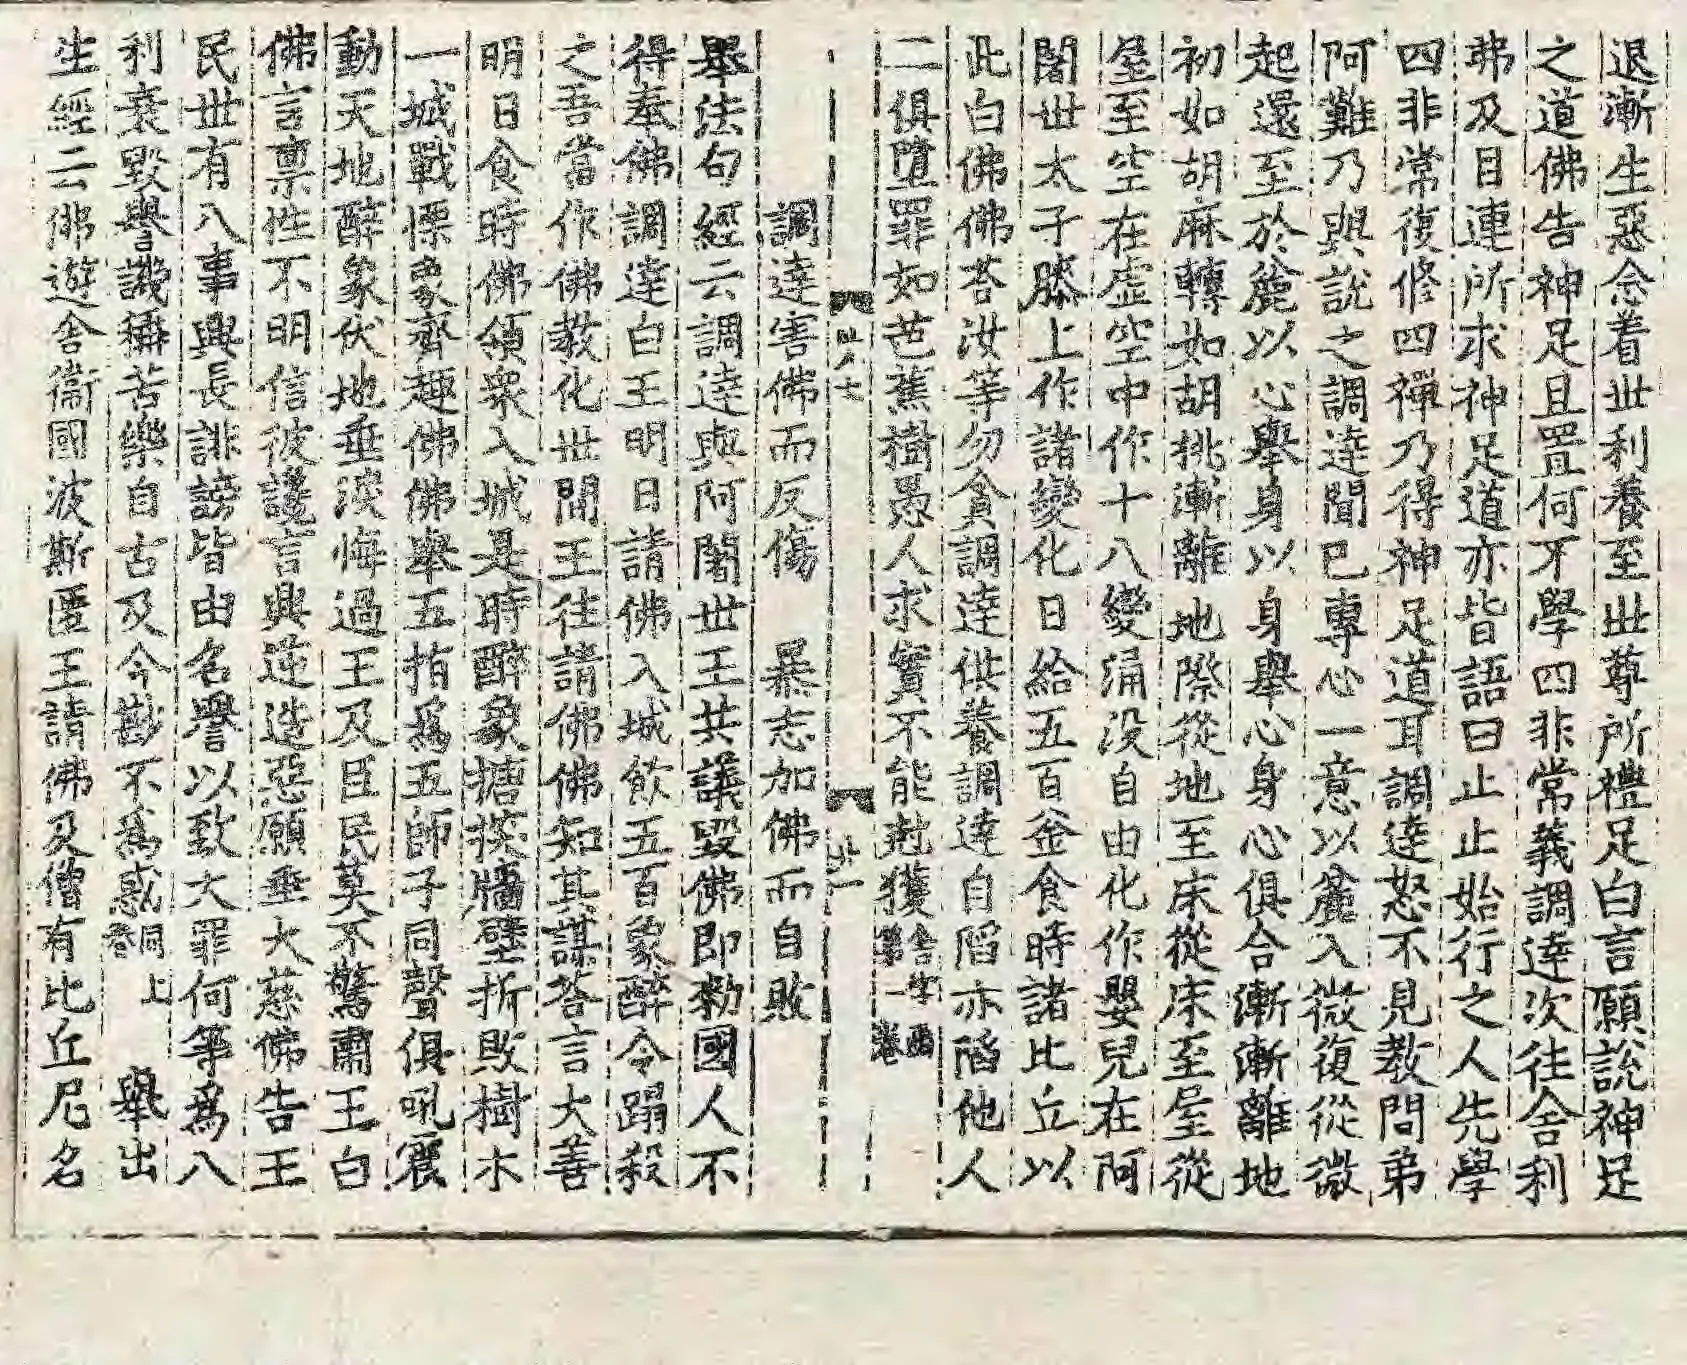 退漸生惡念着世利養至世尊所禮足白言願說神足
之道佛告神足且置何不學四非常義調達次往舍利
弗及目連所求神足道亦皆語曰止止始行之人先學
四非常復修四禪乃得神足道耳調達怒不見教問弟
阿難乃與說之調達聞已專心一意以麁入微復從微
起還至於麁以心舉身以身舉心身心俱合漸漸離地
初如胡麻轉如胡桃漸離地際從地至床從床至屋從
屋至空在虛空中作十八變涌没自由化作嬰兒在阿
闍世太子膝上作諸變化日給五百釜食時諸比丘以
此白佛佛荅汝等勿貪調達供養調達自陷亦陷他人
二俱墮罪如芭蕉樹愚人求實不能尅獲
調達害佛而反傷　暴志加佛而自敗
舉法句經云調達與阿闍世王共議毀佛即勑國人不
得奉佛調達白王明日請佛入城飲五百象醉令蹋殺
之吾當作佛教化世間王往請佛佛知其謀荅言大善
明日食時佛領衆入城是時醉象搪揬牆壁折敗樹木
一城戰慄象齊趣佛佛舉五指爲五師子同聲俱吼震
動天地醉象伏地垂淚悔過王及臣民莫不驚肅王白
佛言禀性不明信彼讒言興逆造惡願垂大慈佛告王
民世有八事興長誹謗皆由名譽以致大罪何等爲八
利衰毀譽譏稱苦樂自古及今尠不為惑同上卷　舉出
生經云佛遊舍衞國波斯匿王請佛及僧有比丘尼名